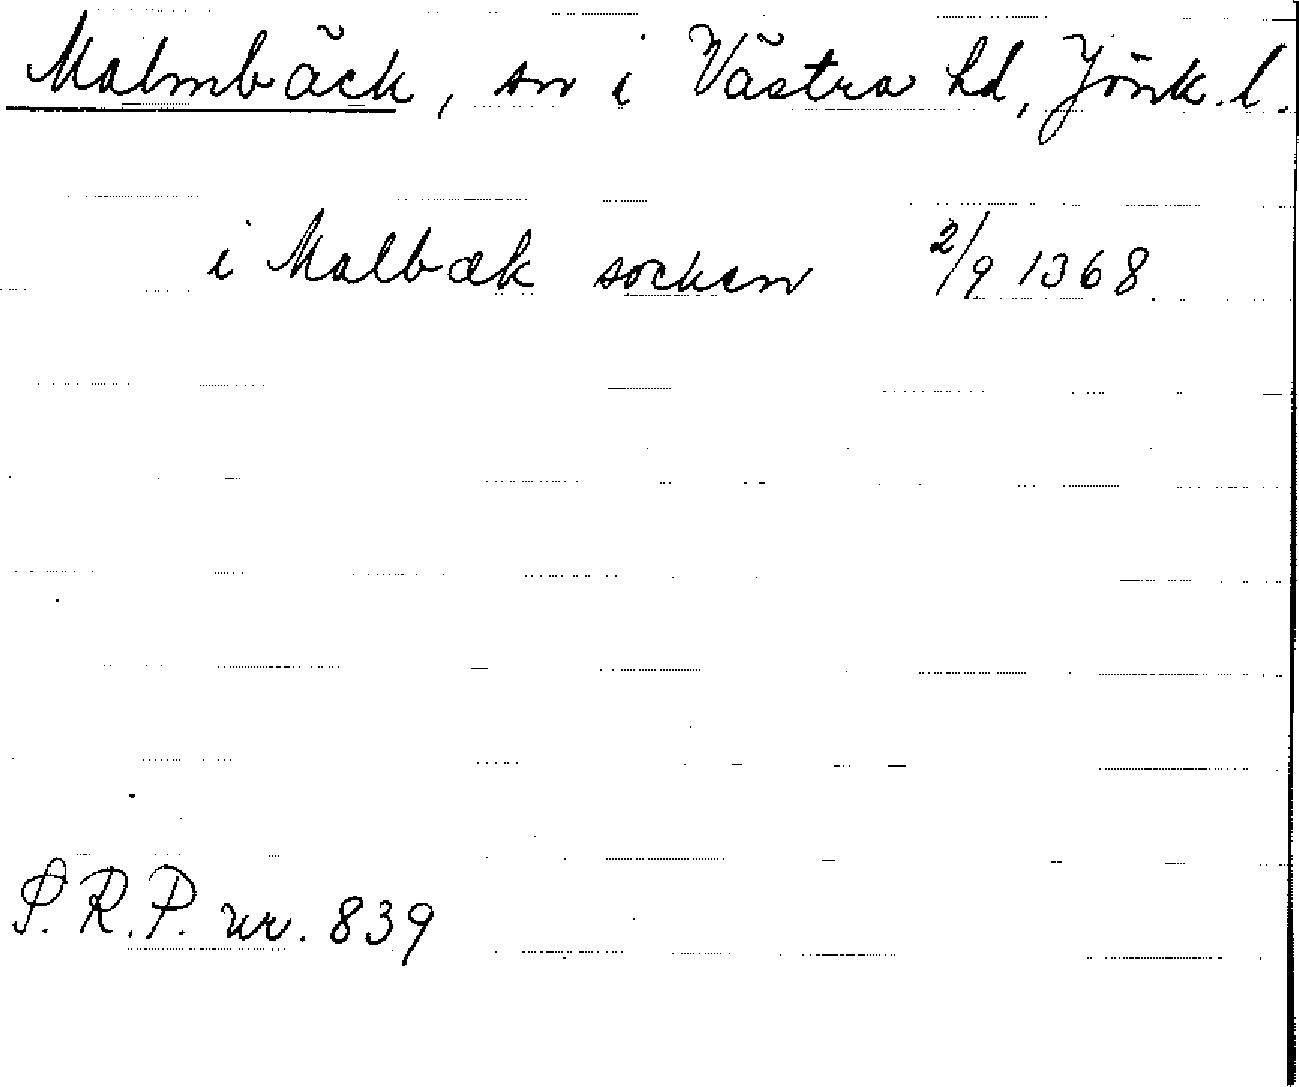 Malmbäck, sn i Västra hd, Jönk. l.
i Malbæk sockan 2/9 1368
S.R.P. nr. 839